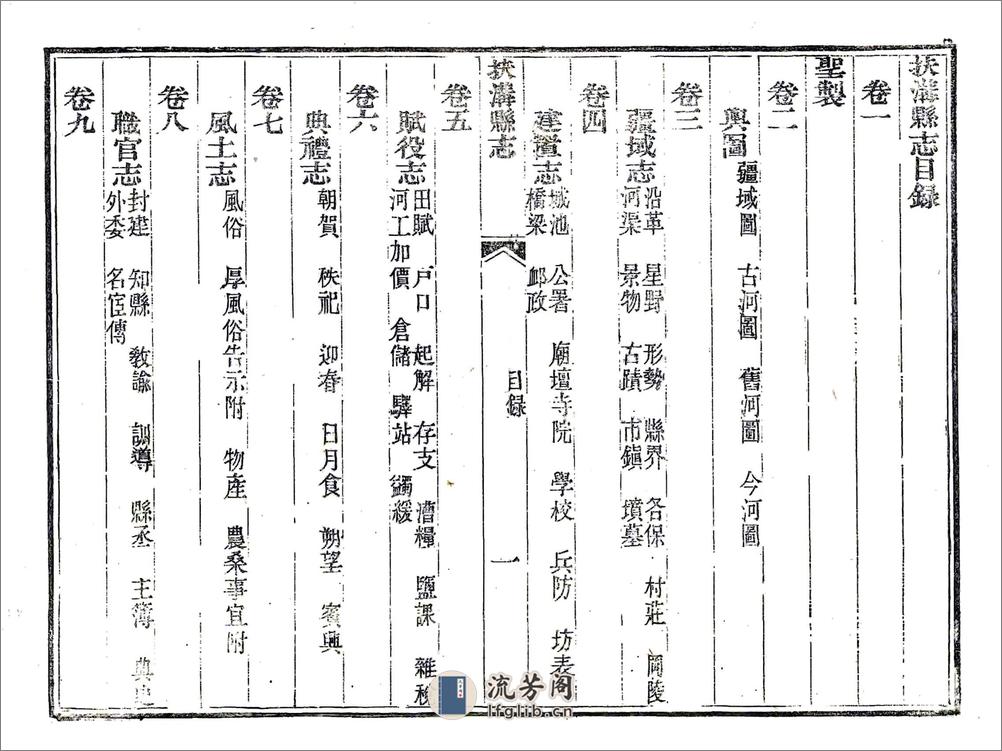 扶溝縣志目錄
卷一
聖製
卷二
輿圖 疆域圖 古河圖 舊河圖 今河圖
卷三
疆域志 沿革 星野 形勢 縣界 各保 村莊 岡陵
河渠 景物 古蹟 市鎮 墳墓
卷四
建置志 城池 公署 廟壇寺院 學校 兵防 坊表
橋梁 郵政
扶溝縣志 目錄 一
卷五
賦役志 田賦 戶口 起解 存支 漕糧 鹽課 雜稅
河工加價 倉儲 驛站 蠲緩
卷六
典禮志 朝賀 秩祀 迎春 日月食 朔望 賓興
卷七
風土志 風俗 厚風俗告示附 物產 農桑事宜附
卷八
職官志 封建 知縣 教諭 訓導 縣丞 主簿 典史
外委 名宦傳
卷九
流芳阁
lfglib.cn